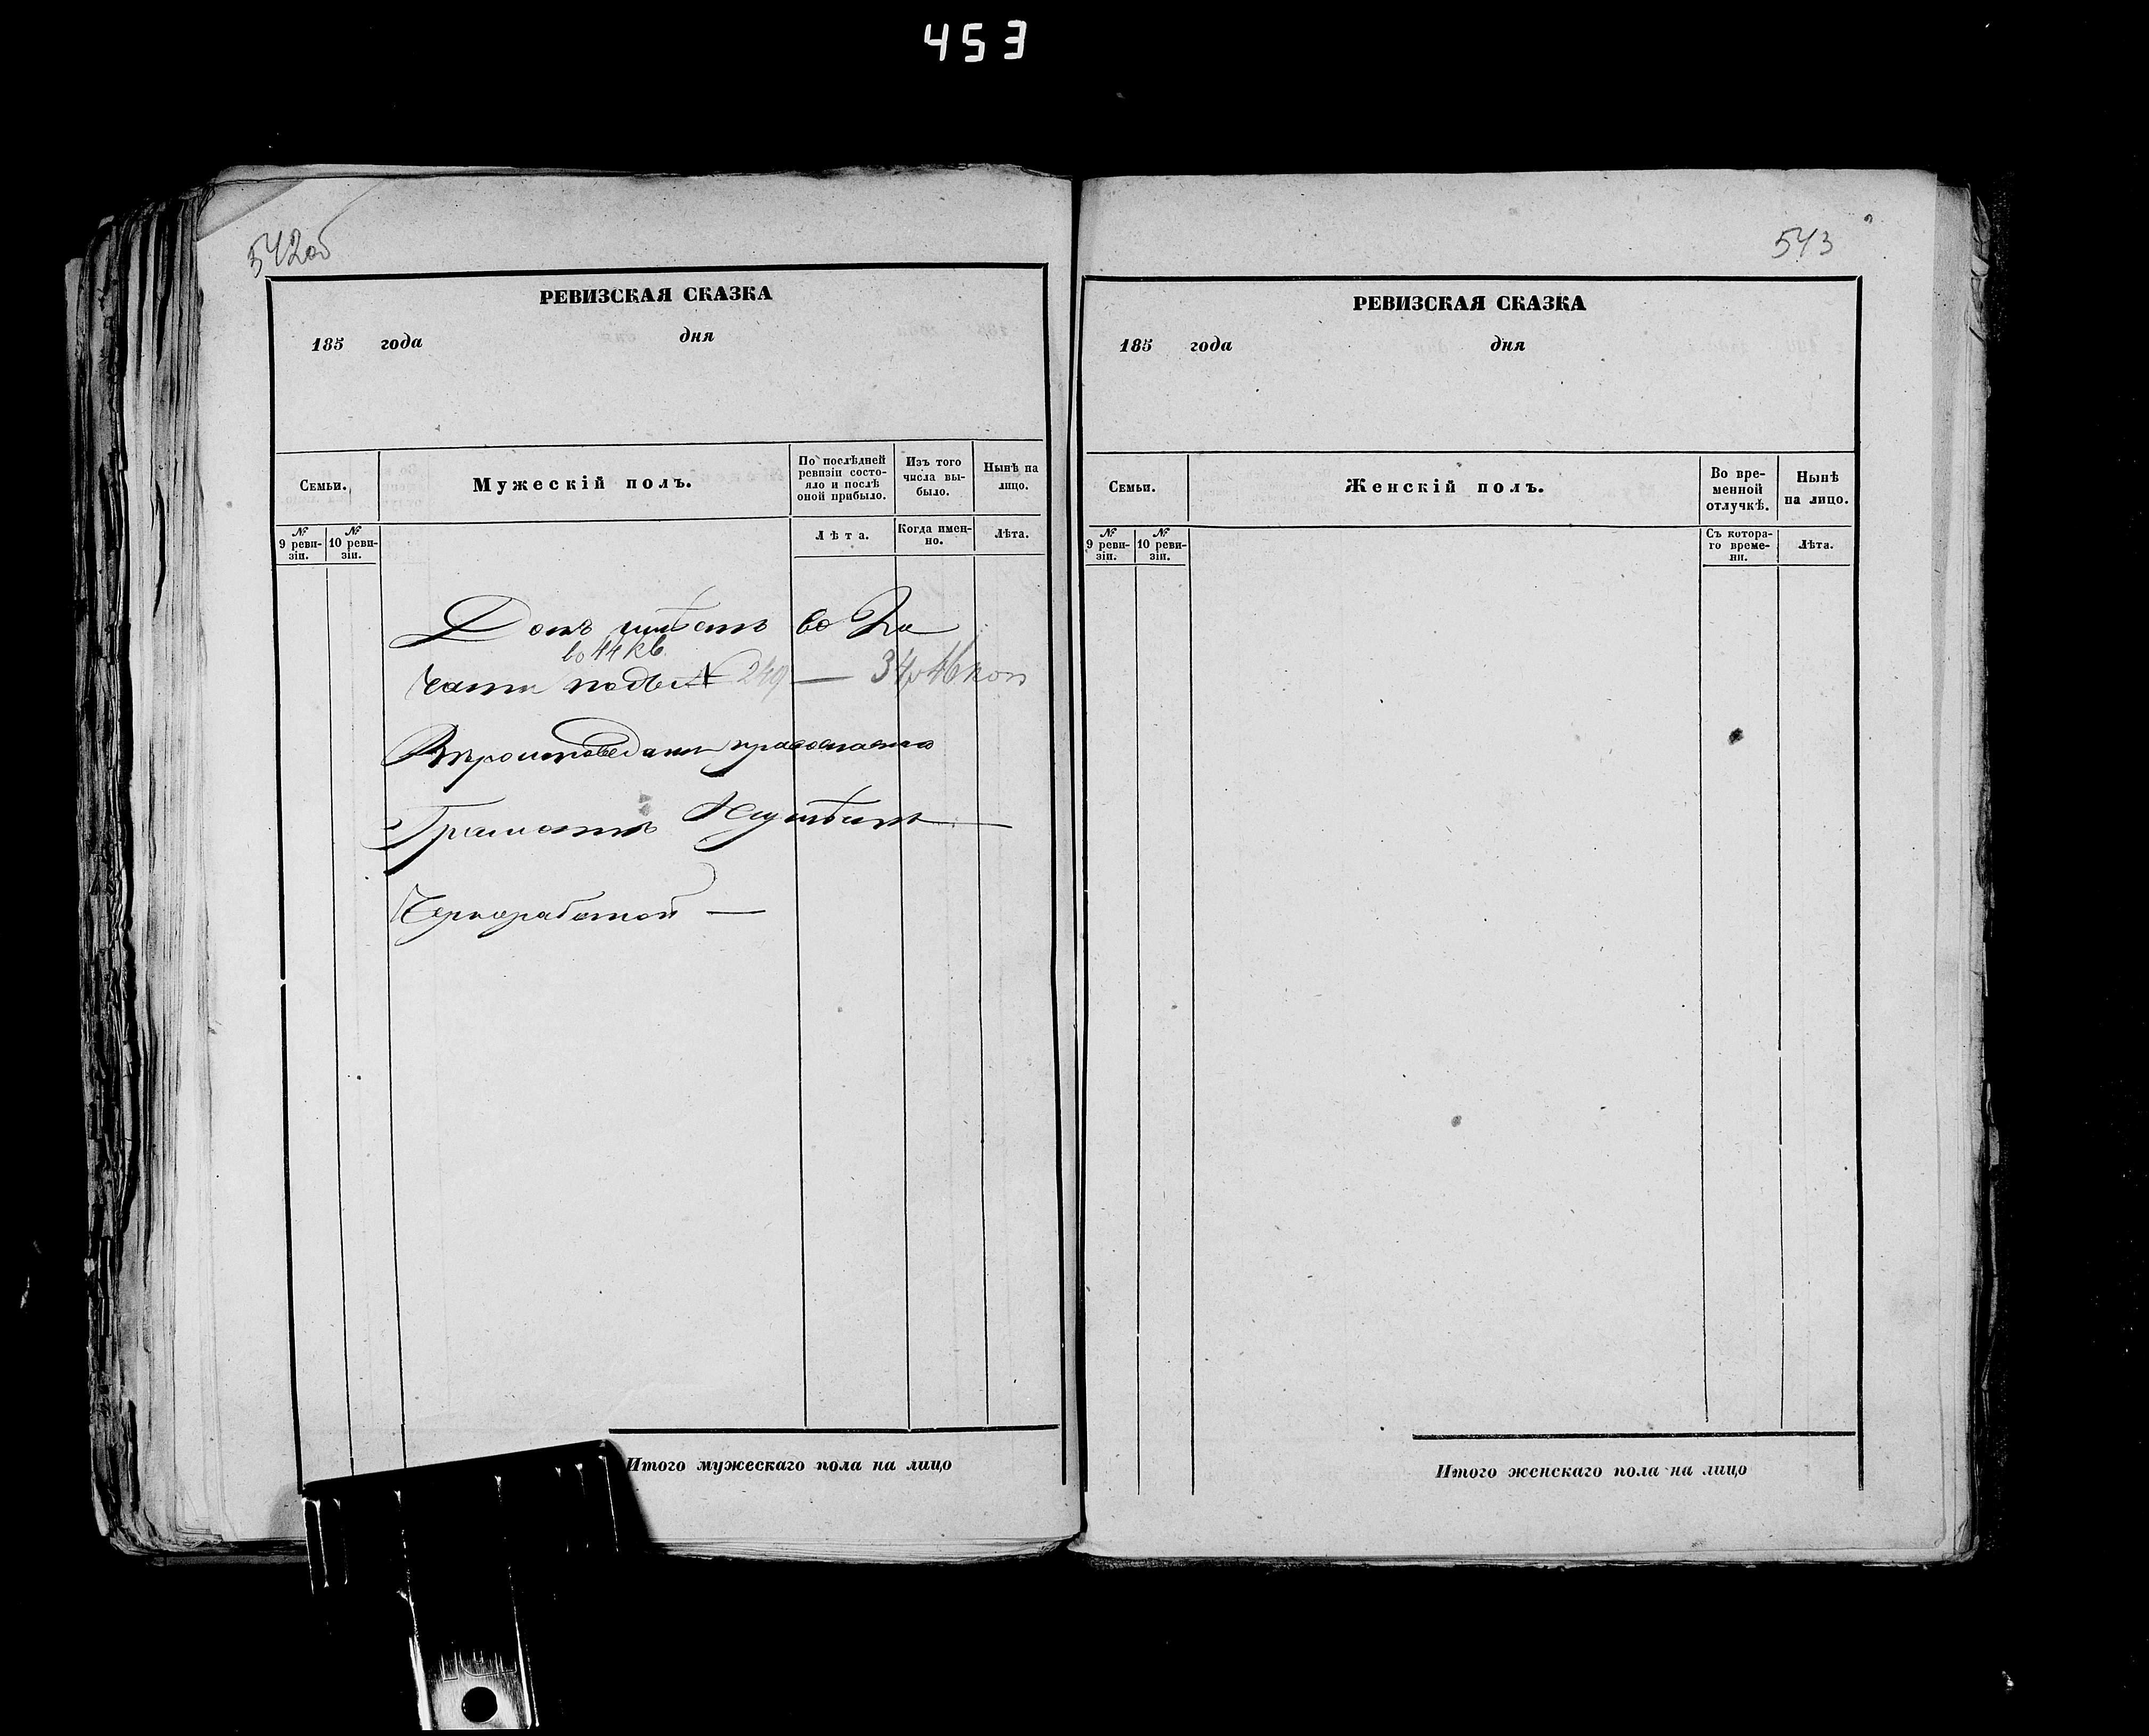 453
542об
РЕВИЗСКАЯ СКАЗКА
185 года дня
Семьи.
Мужескій полъ.
По послѣдней ревизіи состояло и послѣ оной прибыло.
Изъ того числа выбыло.
Нынѣ на лицо.
№ 9 ревизіи.
№ 10 ревизіи.
Лѣта.
Когда именно.
Лѣта.
Домъ имѣетъ во 2й
во 44 кв.
части подъ № 249 — 34р 46 коп
Вѣроисповеданія православнаго
Грамотѣ неумѣетъ
Чернорабочой —
Итого мужескаго пола на лицо
543
РЕВИЗСКАЯ СКАЗКА
185 года дня
Семьи.
Женскій полъ.
Во временной отлучкѣ.
Нынѣ на лицо.
№ 9 ревизіи.
№ 10 ревизіи.
Съ котораго времени.
Лѣта.
Итого женскаго пола на лицо